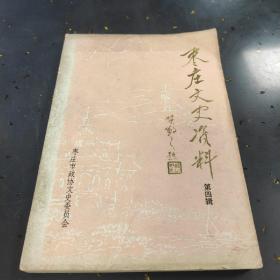 枣庄文史资料
第四辑
枣庄市政协文史委员会